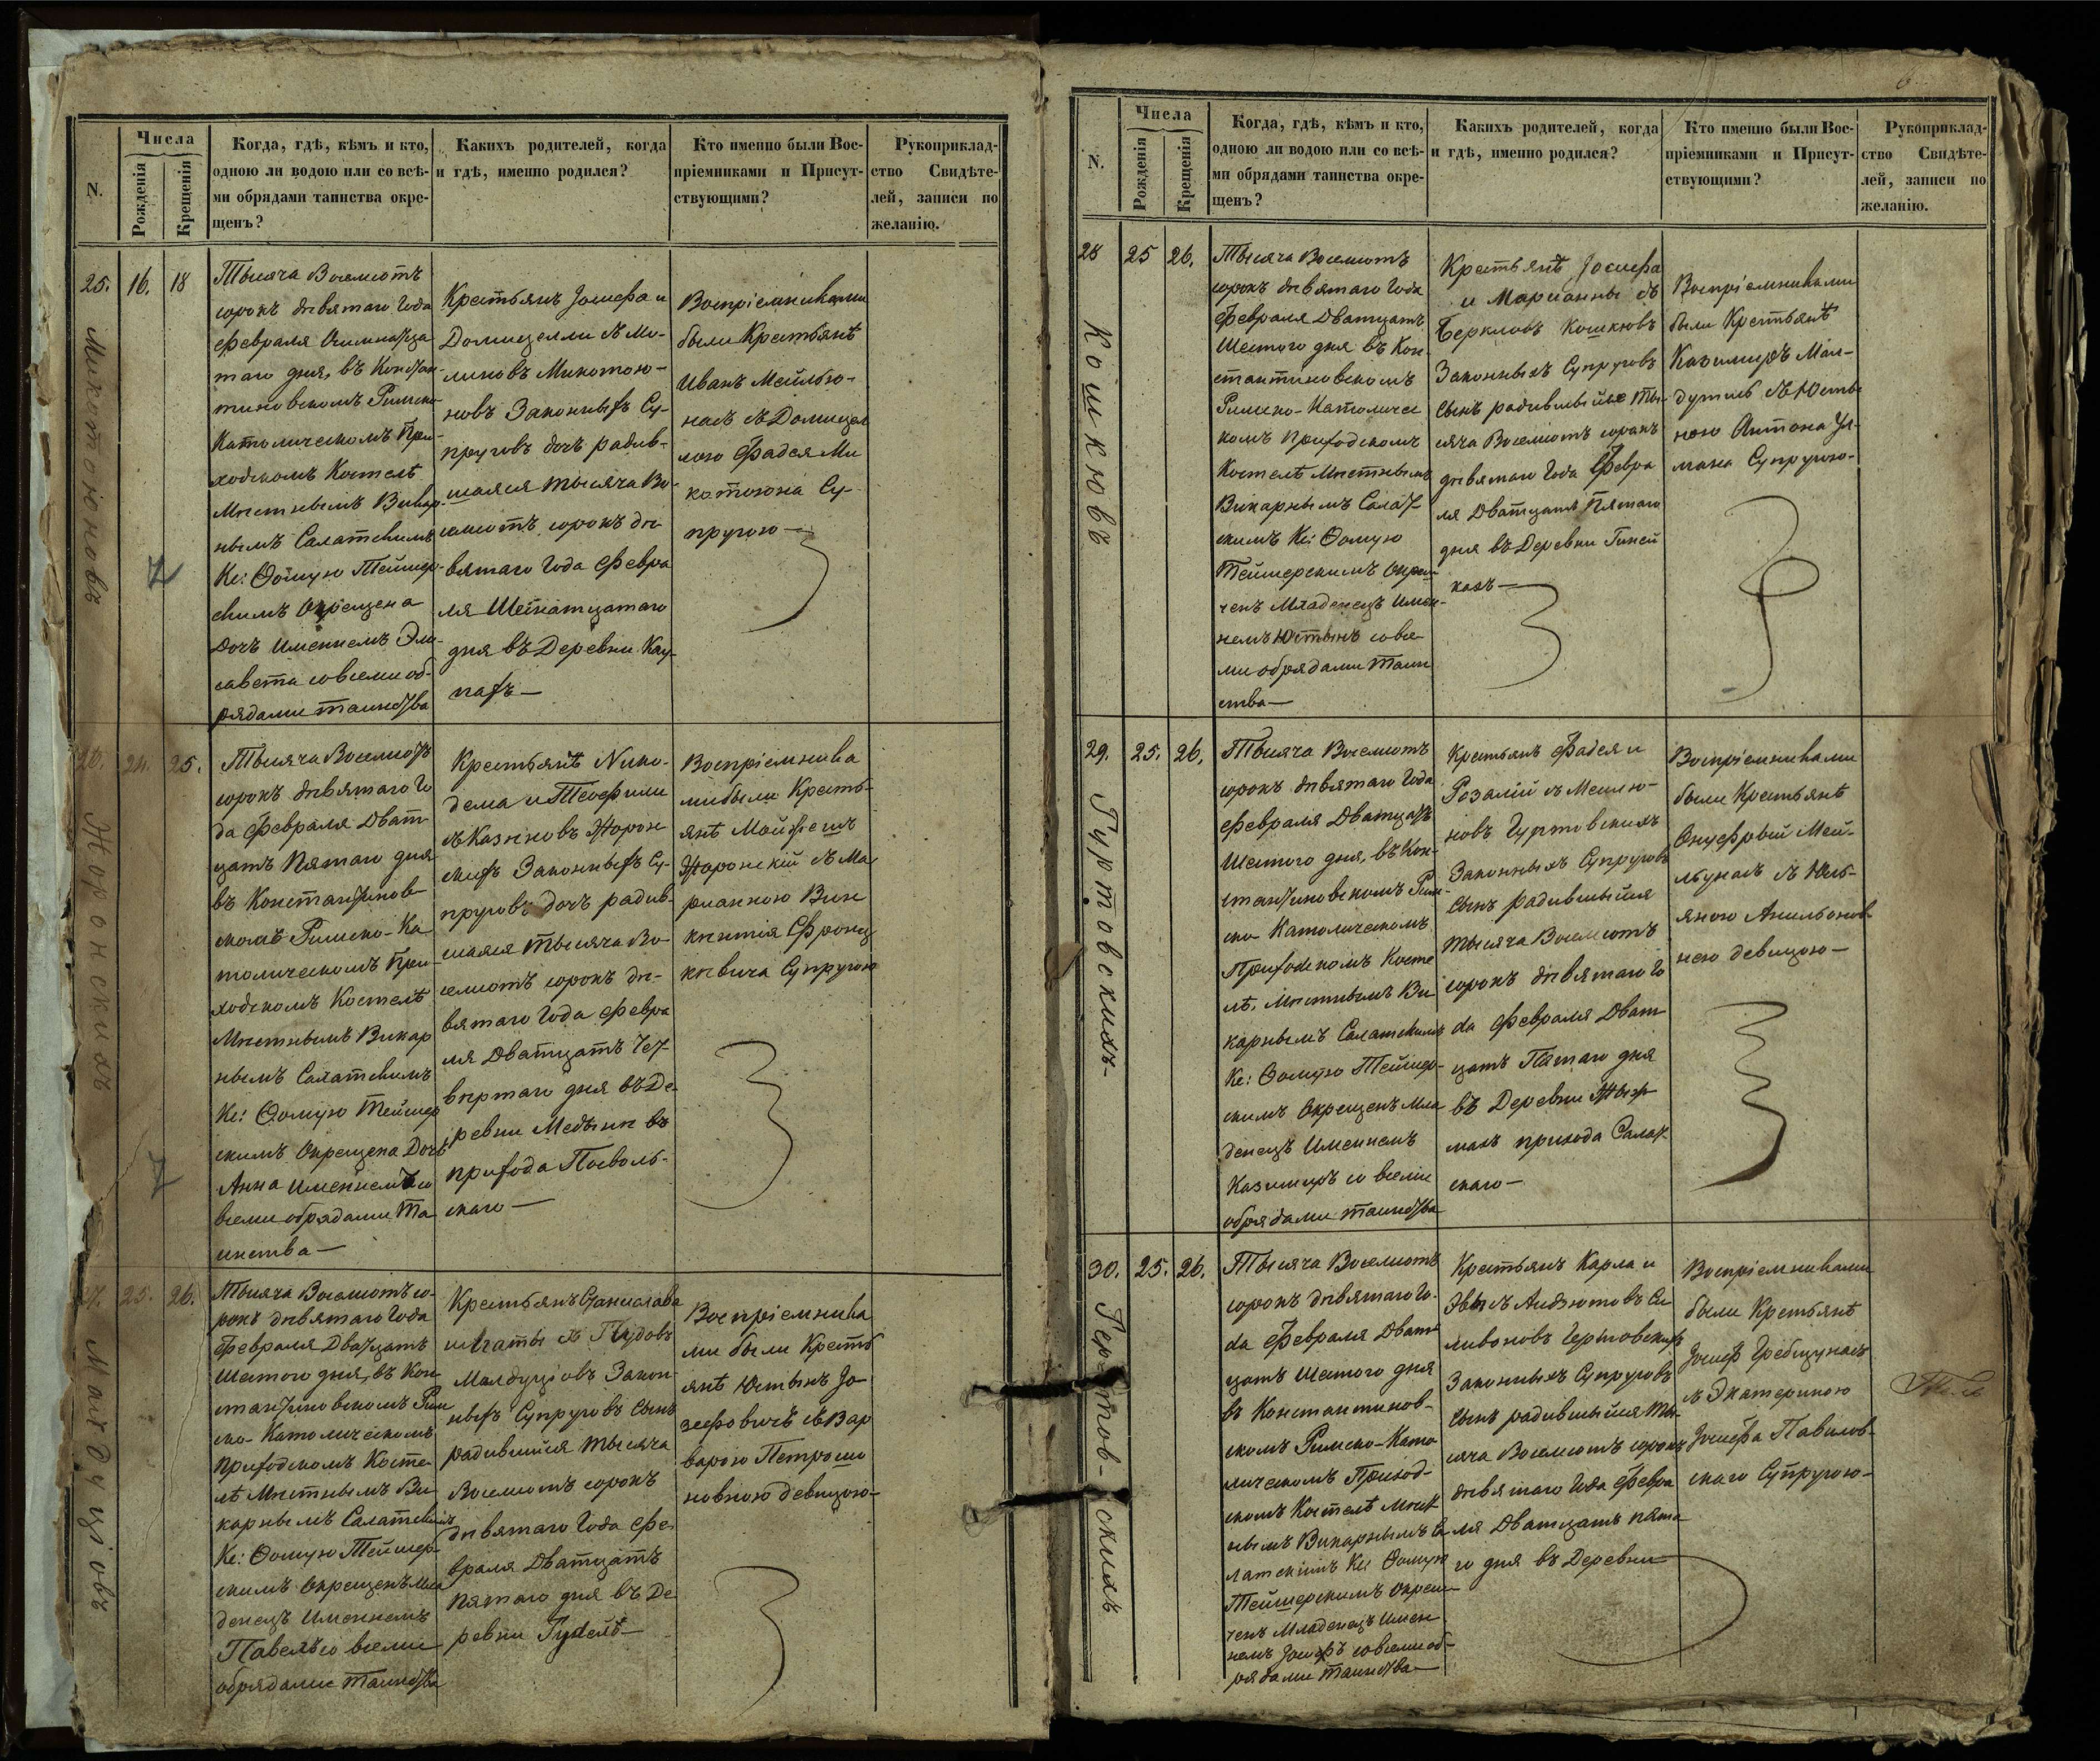 N.
Числа
Рожденія
Крещенія
Когда, гдѣ, кѣмъ и кто,
одною ли водою или со всѣ-
ми обрядами таинства окре-
щенъ?
Какихъ родителей, когда
и гдѣ, именно родился?
Кто именно были Вос-
пріемниками и Присут-
ствующими?
Рукоприклад-
ство Свидѣте-
лей, записи по
желанію.
25. 16. 18
Микотоюновъ
Тысяча Восемсотъ
сорокъ дѣвятаго Года
Февраля Осимнадца
таго дня, въ Констан-
тиновскомъ Римско
Католическомъ При-
ходскомъ Костелѣ
Мѣстнымъ Викар-
нымъ Салатскимъ
Кс: Ѳомую Тейшер-
скимъ Окрещена
Дочъ Именнемъ Эли-
савета со всеми об-
рядами таинства
Крестьянъ Іосифа и
Домицелли съ Мо-
линовъ Микотою-
новъ Законныхъ Су-
пруговъ дочъ радив-
шаяся тысяча Во-
семсотъ сорокъ дѣ-
вятаго Года Февра
ля Шеснатцатаго
дня въ Деревни Кау-
пахъ —
Воспріемниками
были Крестьянѣ
Иванъ Мейлью-
насъ съ Домицел
лою Фадея Ми
котоюна Су-
пругою —
26. 24. 25.
Жоронскихъ
Тысяча Восемсотъ
сорокъ дѣвятаго Го
да Февраля Дват
цать Пятаго дня
въ Константинов
скомъ Римско-Ка
толическомъ При
ходскомъ Костелѣ
Мѣстнымъ Викар
нымъ Салатскимъ
Кс: Ѳомую Тейшер
скимъ Окрещена Дочъ
Анна Именнемъ со
всеми обрядами Та
инства —
Крестьянѣ Нико-
дема и Теофили
съ Казіновъ Жорон
скихъ Законныхъ Су-
пруговъ дочъ радив
шаяся тысяча Во-
семсотъ сорокъ дѣ-
вятаго Года Февра
ля Дватцать Чет
вѣртаго дня въ Де-
ревни Медынѣ въ
прихода Посволь-
скаго —
Воспріемника
ми были Кресть-
янѣ
Жоронскій съ Ма
рианною Вин
кѣнтія
кѣвича Супругою
27. 25. 26.
Малдуціовъ
Тысяча Восемсотъ со-
рокъ дѣвятаго Года
Февраля Дватцать
Шестого дня, въ Кон
стантиновскомъ Рим
ско-Католическомъ
Приходскомъ Косте-
лѣ Мѣстнымъ Ви-
карнымъ Салатскимъ
Кс: Ѳомую Тейшер-
скимъ Окрещенъ Мла
денецъ Именнемъ
Павелъ со всеми
обрядами таинства
Крестьянъ Станислава
и Агаты съ Гудовъ
Малдуціовъ Закон
ныхъ Супруговъ Сынъ
радившійся тысяча
Восемсотъ сорокъ
дѣвятаго Года Фе-
враля Дватцать
пятаго дня въ Де
ревни
Воспріемника
ми были Кресть
янѣ Юстынъ Іо
зефовичъ съ Вар
варою Петрошо
новною девицою-
N.
Числа
Рожденія
Крещенія
Когда, гдѣ, кѣмъ и кто,
одною ли водою или со всѣ-
ми обрядами таинства окре-
щенъ?
Какихъ родителей, когда
и гдѣ, именно родился?
Кто именно были Вос-
пріемниками и Присут-
ствующими?
Рукоприклад-
ство Свидѣте-
лей, записи по
желанію.
28 25 26.
Кошкювъ
Тысяча Восемсотъ
сорокъ дѣвятаго Года
Февраля Дватцать
Шестого дня въ Кон-
стантиновскомъ
Римско-Католичес
комъ Приходскомъ
Костелѣ Мѣстнымъ
Викарнымъ Салат
скимъ Кс: Ѳомую
Тейшерскимъ Окре-
ченъ Младенецъ Имен-
немъ Юстынъ со все
ми обрядами таин
ства —
Крестьянѣ Іосифа
и Марианны съ
Беркловъ Кошкювъ
Законныхъ Супруговъ
Сынъ радившыйся ты-
сяча Восемсотъ сорокъ
дѣвятаго Года Февра
ля Дватцать Пятаго
дня въ Деревни Гиней
кахъ —
Воспріемниками
были Крестьянѣ
Казимиръ Мал-
дутисъ съ Юсты
ною Антона Ул-
мана Супругою-
29. 25. 26.
Гуртовскихъ-
Тысяча Восемсотъ
сорокъ дѣвятаго Года
Февраля Дватцать
Шестого дня, въ Кон-
стантиновскомъ Рим-
ско-Католическомъ
Приходскомъ Косте
лѣ, Мѣстнымъ Ви
карнымъ Салатскимъ
Кс: Ѳомую Тейшер-
скимъ Окрещенъ Мла
денецъ Именнемъ
Казимиръ со всеми
обрядами таинства
Крестьянъ Фадея и
Розалій съ Мешлю-
новъ Гуртовскихъ
Законныхъ Супруговъ
Сынъ радившыйся
тысяча Восемсотъ
сорокъ дѣвятаго Го
да Февраля Дват
цать Пятаго дня
въ Деревни
махъ прихода Салат
скаго —
Воспріемниками
были Крестьянѣ
Онуфрій Мей-
лунасъ съ Юль-
яною
ною девицою —
30. 25. 26.
Гертов-скихъ
Тысяча Восемсотъ
сорокъ дѣвятаго Го-
да Февраля Дват
цать Шестого дня
въ Константинов-
скомъ Римско-Като
лическомъ Приход-
скомъ Костелѣ Мѣст
нымъ Викарнымъ Са
латскимъ Кс: Ѳомую
Тейшерскимъ Окре-
ченъ Младенецъ Имен
немъ Іосифъ со всеми об-
рядами таинства —
Крестьянъ Карла и
Эвы съ
Гертовскихъ
Законныхъ Супруговъ
Сынъ радившыйся ты-
сяча Восемсотъ сорокъ
дѣвятаго Года Февра
ля Дватцать пята
го дня въ Деревни
Воспріемниками
были Крестьянѣ
Іосифъ Гребщунасъ
съ Экатериною
Іосифа Павилов-
скаго Супругою-